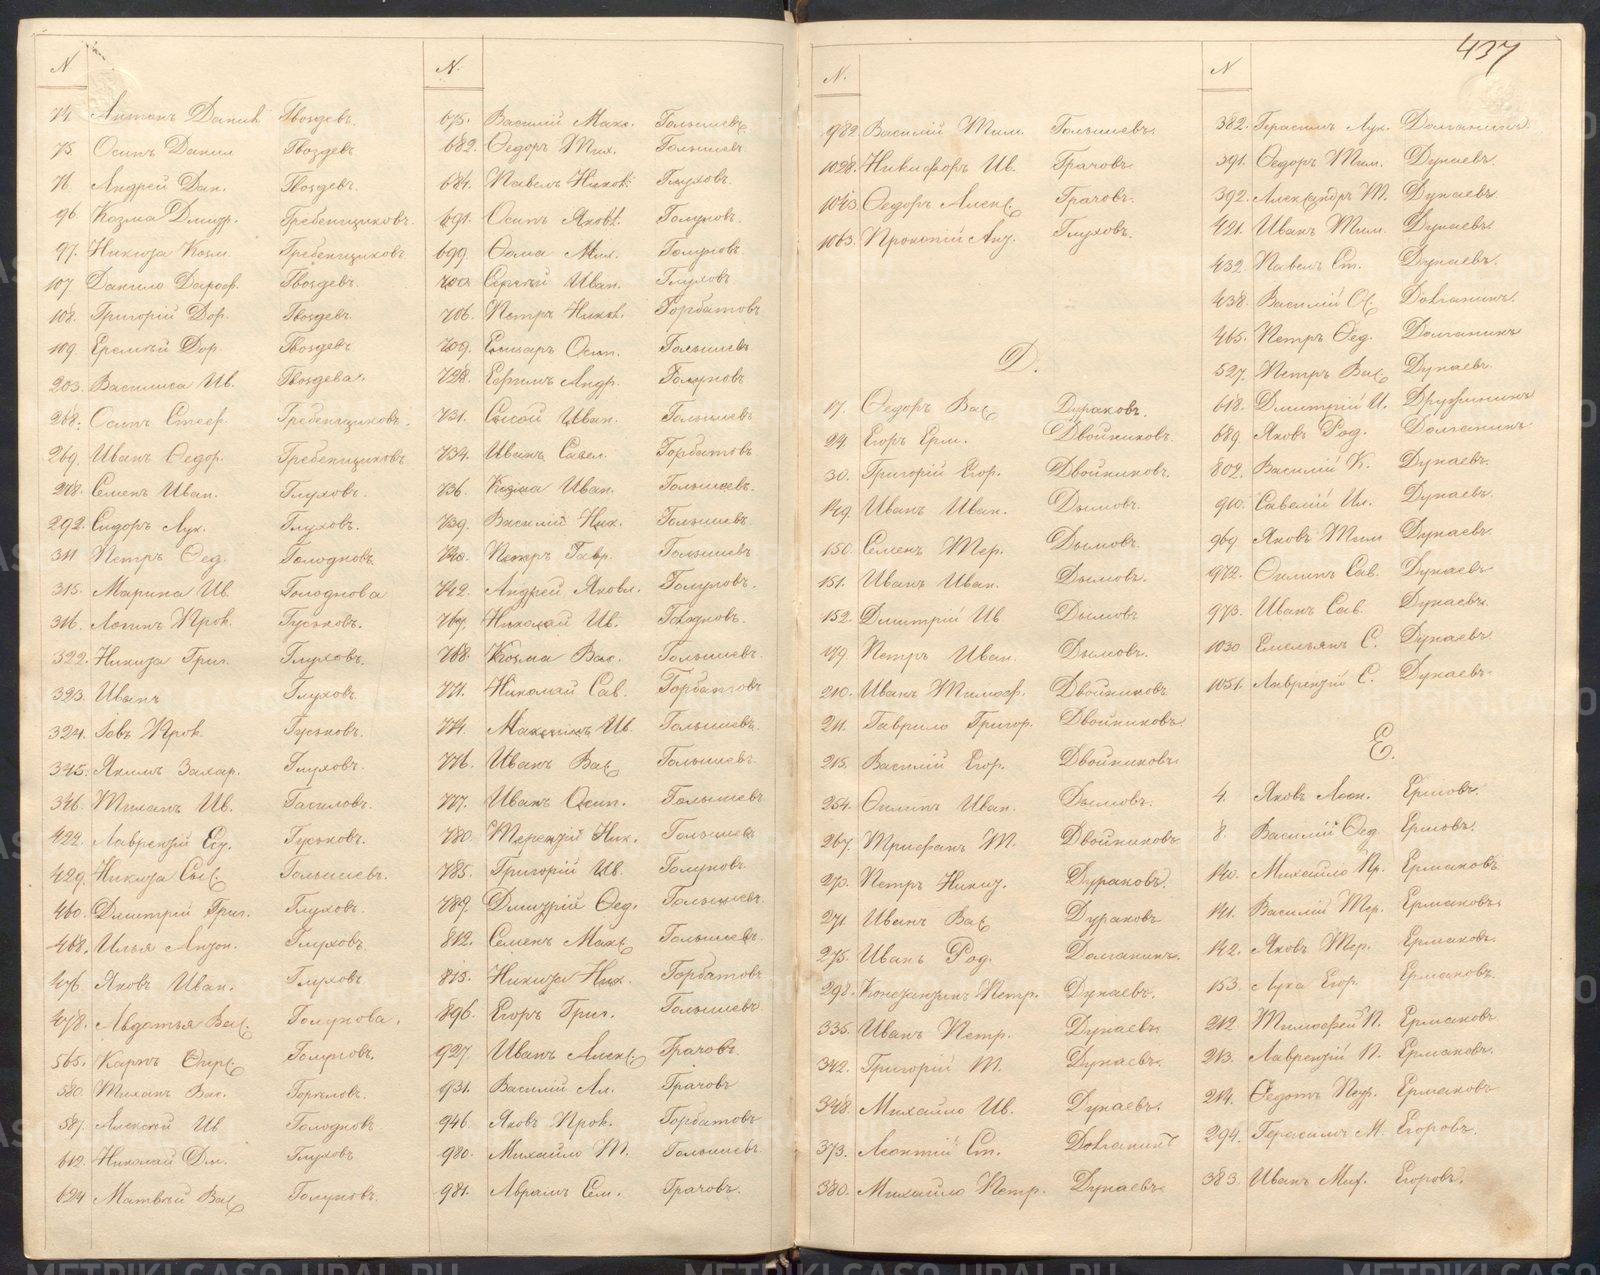 437
N
74. Антонъ Данил. Гвоздевъ.
75. Осипъ Данил. Гвоздевъ
76. Андрей Дан. Гвоздевъ.
96. Козма Дмитр. Гребенщиковъ.
97. Никита Козм. Гребенщиковъ
107. Данило Дороф. Гвоздевъ.
108. Григорій Дор. Гвоздевъ.
109. Еремѣй Дор. Гвоздевъ
203. Василиса Ив. Гвоздева.
268. Осипъ Стеф. Гребенщиковъ.
269. Иванъ Ѳедор. Гребенщиковъ
278. Семенъ Иван. Глуховъ.
292. Сидоръ Лук. Глуховъ.
311 Петръ Ѳед. Голодновъ
315. Марина Ив. Голоднова
316. Логинъ Прок. Гуськовъ.
322. Никита Григ. Глуховъ.
323. Иванъ Глуховъ.
324. Іовъ Прок. Гуськовъ.
345. Якимъ Захар. Глуховъ.
346. Ив. Гасиловъ.
422. Лаврентій Гуськовъ.
429. Никита Голышевъ.
460. Дмитрій Григ. Глуховъ.
468. Илья Антон. Глуховъ
476. Яковъ Иван. Глуховъ.
478. Авдотья Вас. Голунова.
565. Карпъ Голуновъ.
580. Вас.
587. Алексѣй Ив Голодновъ
612. Николай Дм. Глуховъ
624 Матвѣй Вас Голуновъ
N.
675. Василій Макс. Голышевъ
682. Ѳедоръ Мих. Голышевъ
684. Павелъ Никол. Глуховъ
691. Осипъ Яковл. Голуновъ.
699. Ѳома Мих. Голуновъ.
703. Сергѣй Иван. Глуховъ
706. Петръ Никол. Горбатовъ
709. Елизаръ Осип. Голышевъ
728. Ефимъ Андр. Голуновъ
731. Сысой Иван. Голышевъ
734. Иванъ Савел. Горбатовъ
736. Козма Иван. Голышевъ.
739. Василій Ник. Голышевъ
740. Петръ Гавр. Голышевъ
742. Андрей Яковл. Голуновъ.
767. Николай Ив. Голодновъ.
768. Козма Вас. Голышевъ
771. Николай Сав. Горбатовъ
774. Максимъ Ив. Голышевъ
776. Иванъ Вас Голышевъ
777. Иванъ Осип. Голышевъ
780. Терентій Ник. Голышевъ
785. Григорій Ив. Голуновъ
789. Дмитрій Ѳед. Голышевъ
812. Семенъ Макс Голышевъ
813. Никита Ник. Горбатовъ
896. Егоръ Григ. Голышевъ
927. Иванъ Алекс. Грачовъ
931. Василій Ал. Грачовъ
946. Яковъ Прок. Горбатовъ
980. Михайло Т. Голышевъ
981. Аврамъ Сем. Грачовъ.
N.
982. Василій Тим. Голышевъ
1028. Никифоръ Ив. Грачовъ
1043. Ѳедоръ Алекс Грачовъ.
1063. Прокопій Ант. Глуховъ.
Д.
17. Ѳедоръ Вас Дураковъ.
29. Егоръ Ерм. Двойниковъ.
30. Григорій Егор. Двойниковъ.
149. Иванъ Иван. Дымовъ.
150. Семенъ Тер. Дымовъ.
151. Иванъ Иван. Дымовъ.
152. Дмитрій Ив Дымовъ
179. Петръ Иван. Дымовъ.
210. Иванъ Тимоф. Двойниковъ
211. Гаврило Григор. Двойниковъ
215. Василій Егор. Двойниковъ
254. Филипъ Иван. Дымовъ.
267. Трифанъ Т. Двойниковъ
270. Петръ Никит. Дураковъ.
271 Иванъ Вас Дураковъ
275. Иванъ Род. Долганинъ.
298. Константинъ Петр. Дунаевъ.
335. Иванъ Петр. Дунаевъ
342. Григорій Т. Дунаевъ.
348. Михайло Ив. Дунаевъ.
373. Леонтій Ст. Долганинъ
380. Михайло Петр. Дунаевъ
N
382. Герасимъ Лук. Долганинъ.
391. Ѳедоръ Тим. Дунаевъ
392. Александръ Т. Дунаевъ
421. Иванъ Тим. Дунаевъ
432. Павелъ Ст. Дунаевъ.
438. Василій Долганинъ.
465. Петръ Ѳед. Долганинъ
527. Петръ Вас Дунаевъ.
618. Дмитрій И. Дружининъ
689. Яковъ Род. Долганинъ
802. Василій К. Дунаевъ.
910. Савелій Ил. Дунаевъ.
969 Яковъ Тим Дунаевъ
972. Филипъ Сав. Дунаевъ
973. Иванъ Сав. Дунаевъ.
1030 Емельянъ С. Дунаевъ
1051. Лаврентій С. Дунаевъ.
Е.
4. Яковъ Леон. Ершовъ.
8. Василій Ѳед Ершовъ.
140. Михайло Пр. Ермаковъ
141. Василій Тер. Ермаковъ.
142. Яковъ Тер. Ермаковъ.
153. Лука Егор. Ермаковъ.
212. Тимофей П. Ермаковъ
213. Лаврентій П. Ермаковъ.
214. Ѳедотъ Петр. Ермаковъ
294. Герасимъ М. Егоровъ.
383. Иванъ Мит. Егоровъ.
METRIKI.GASO-URAL.RU